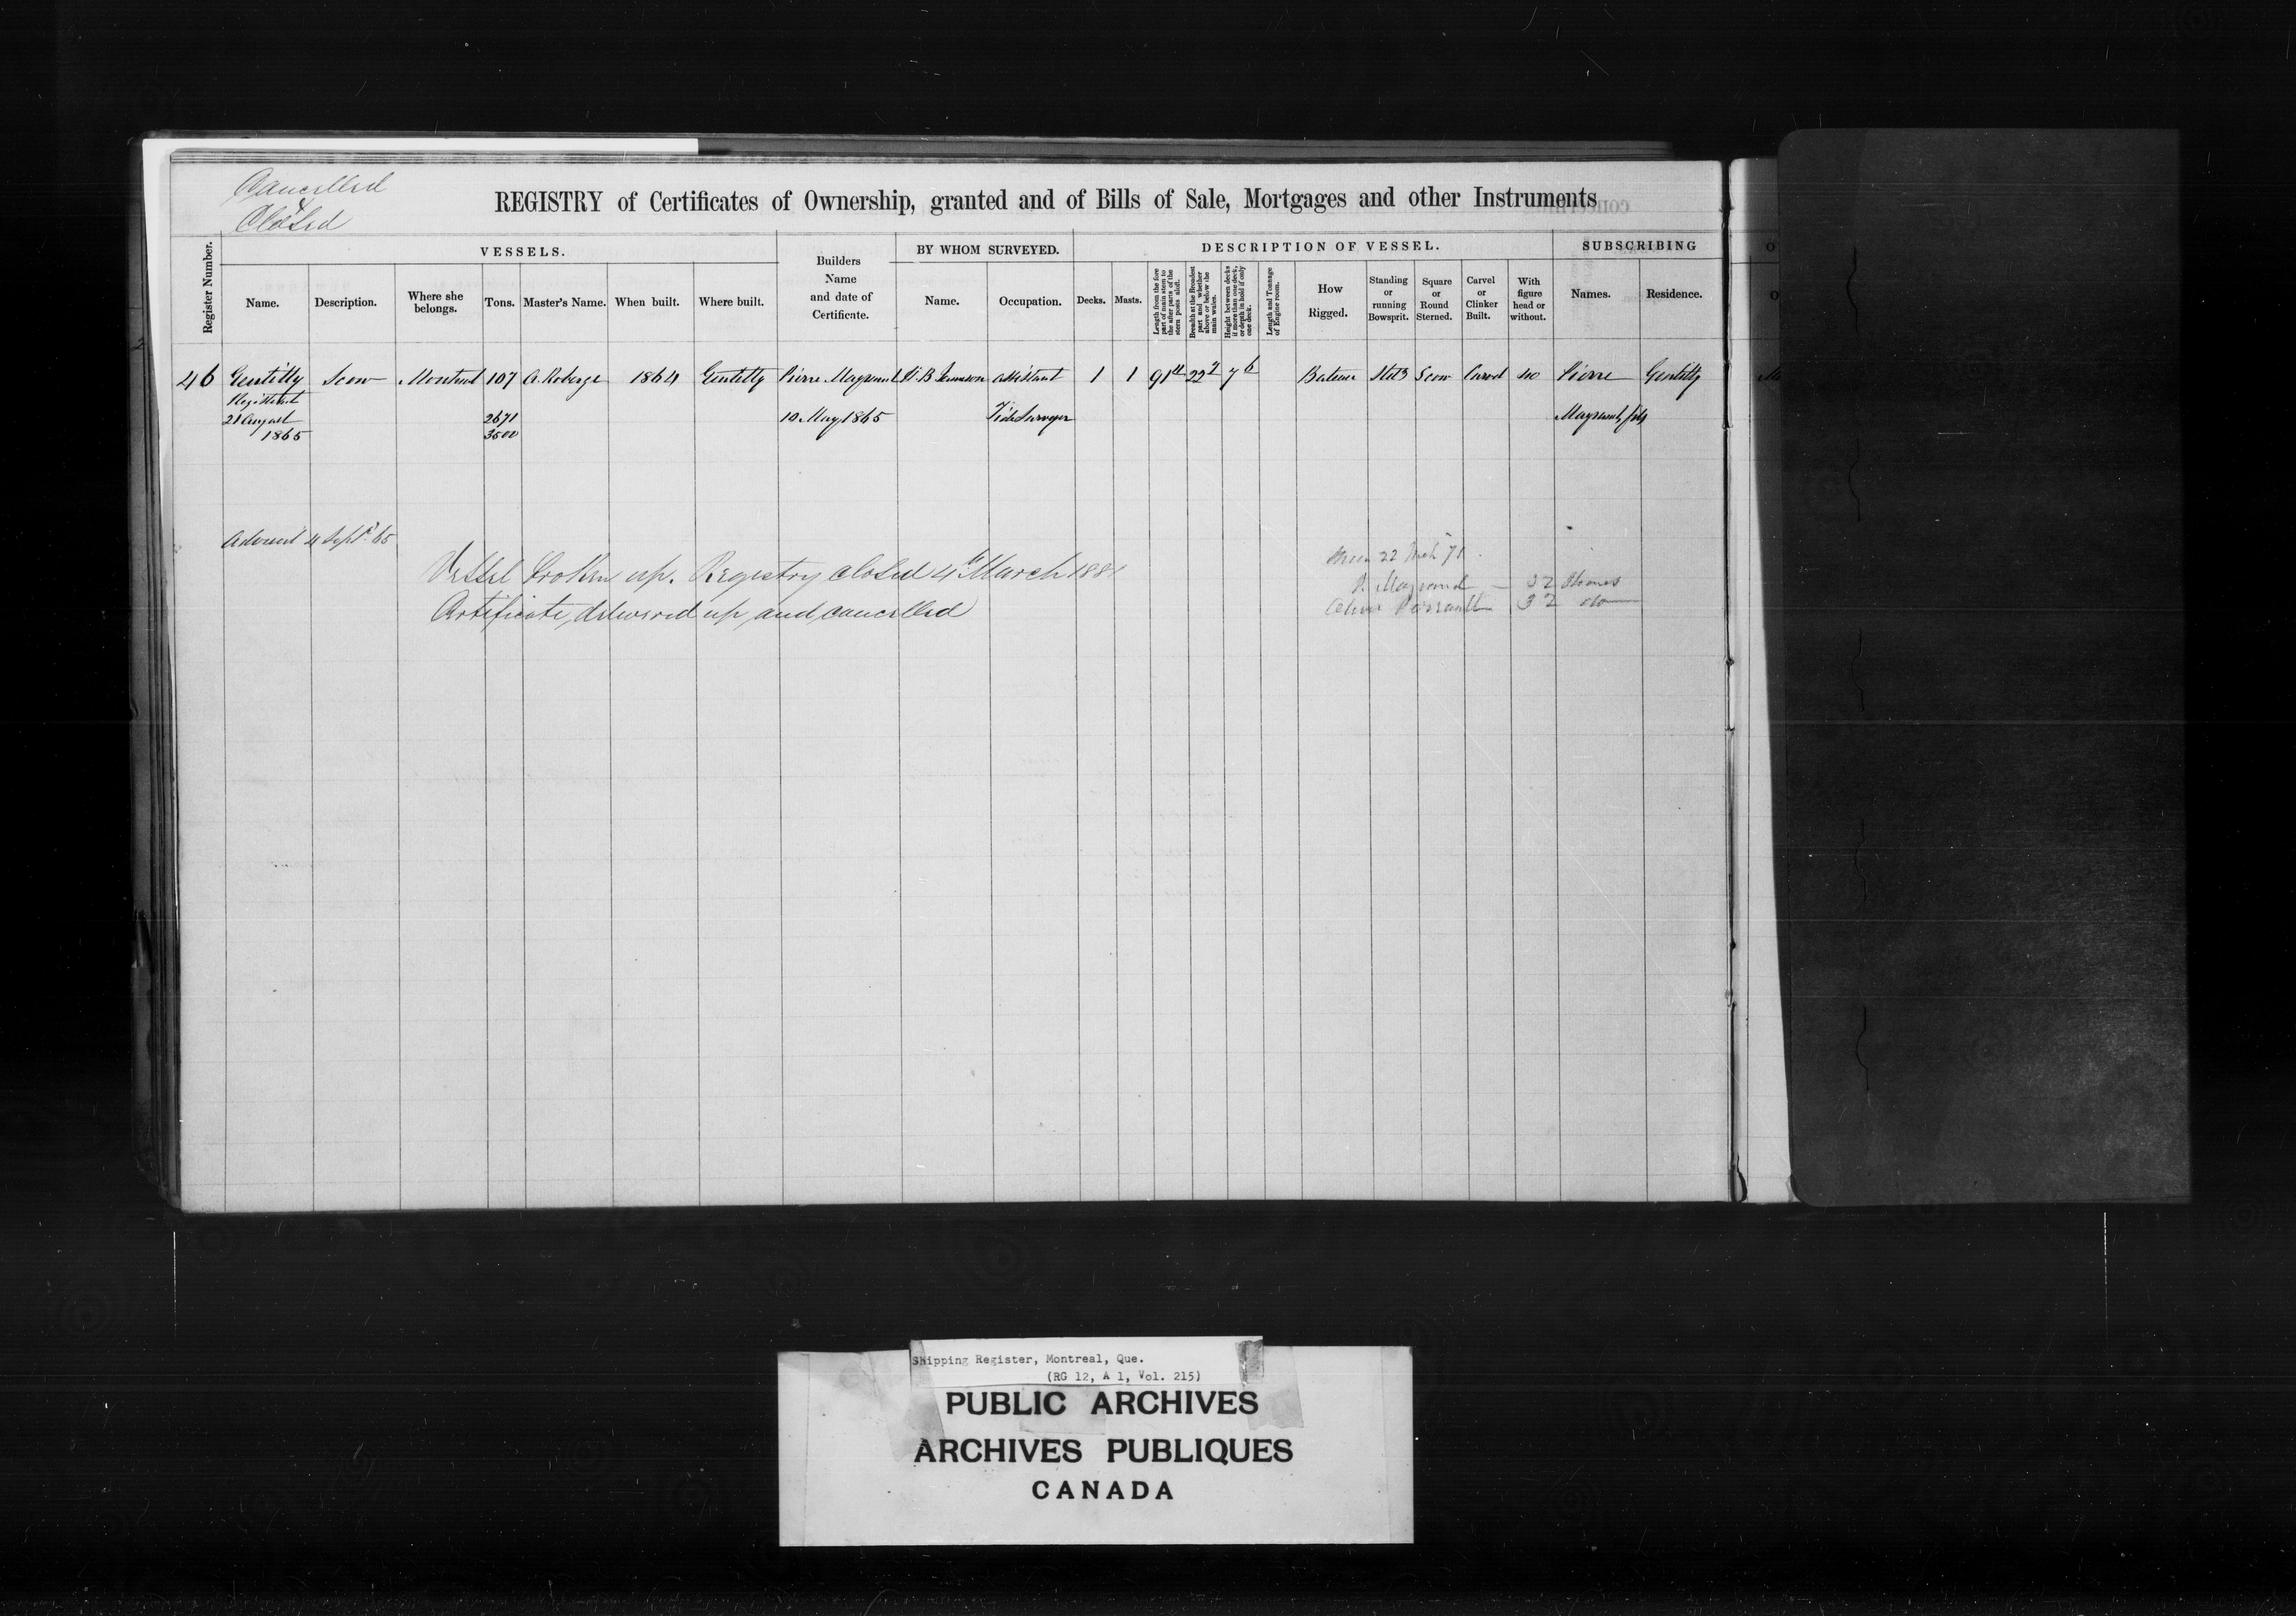 Cancelled
&
Closed
REGISTRY of Certificates of Ownership, granted and of Bills of Sale, Mortgages and other Instruments
Register Number.
VESSELS.
Name.
Description.
Where she belongs.
Tons.
Master's Name.
When built.
Where built.
Builders Name and date of Certificate.
BY WHOM SURVEYED.
Name.
Occupation.
DESCRIPTION OF VESSEL.
Decks.
Masts.
Length from the fore part of main stem to the after parts of the stern posts aloft.
Breadth at the Broadest part and whether above or below the main wales.
Height between decks if more than one deck, or depth in hold if only one deck.
Length and Tonnage of Engine room.
How Rigged.
Standing or running Bowsprit.
Square or Round Sterned.
Carvel or Clinker Built.
With figure head or without.
SUBSCRIBING
Names.
Residence.
46 Gentilly Scow Montreal 107 A. Roberge 1864 Gentilly Pierre B assistant 1 1 91 22 7 6 Scow Carvel no Pierre Gentilly
Registered
21 August 2671 10 May 1865 Tide Surveyor fils
1865 3500
4 Sept. 65
Vessel broken up. Registry closed 4th March 1881
Certificate, delivered up, and cancelled
22 71
32 Shares
32 do
Shipping Register, Montreal, Que.
(RG 12, A 1, Vol. 215)
PUBLIC ARCHIVES
ARCHIVES PUBLIQUES
CANADA